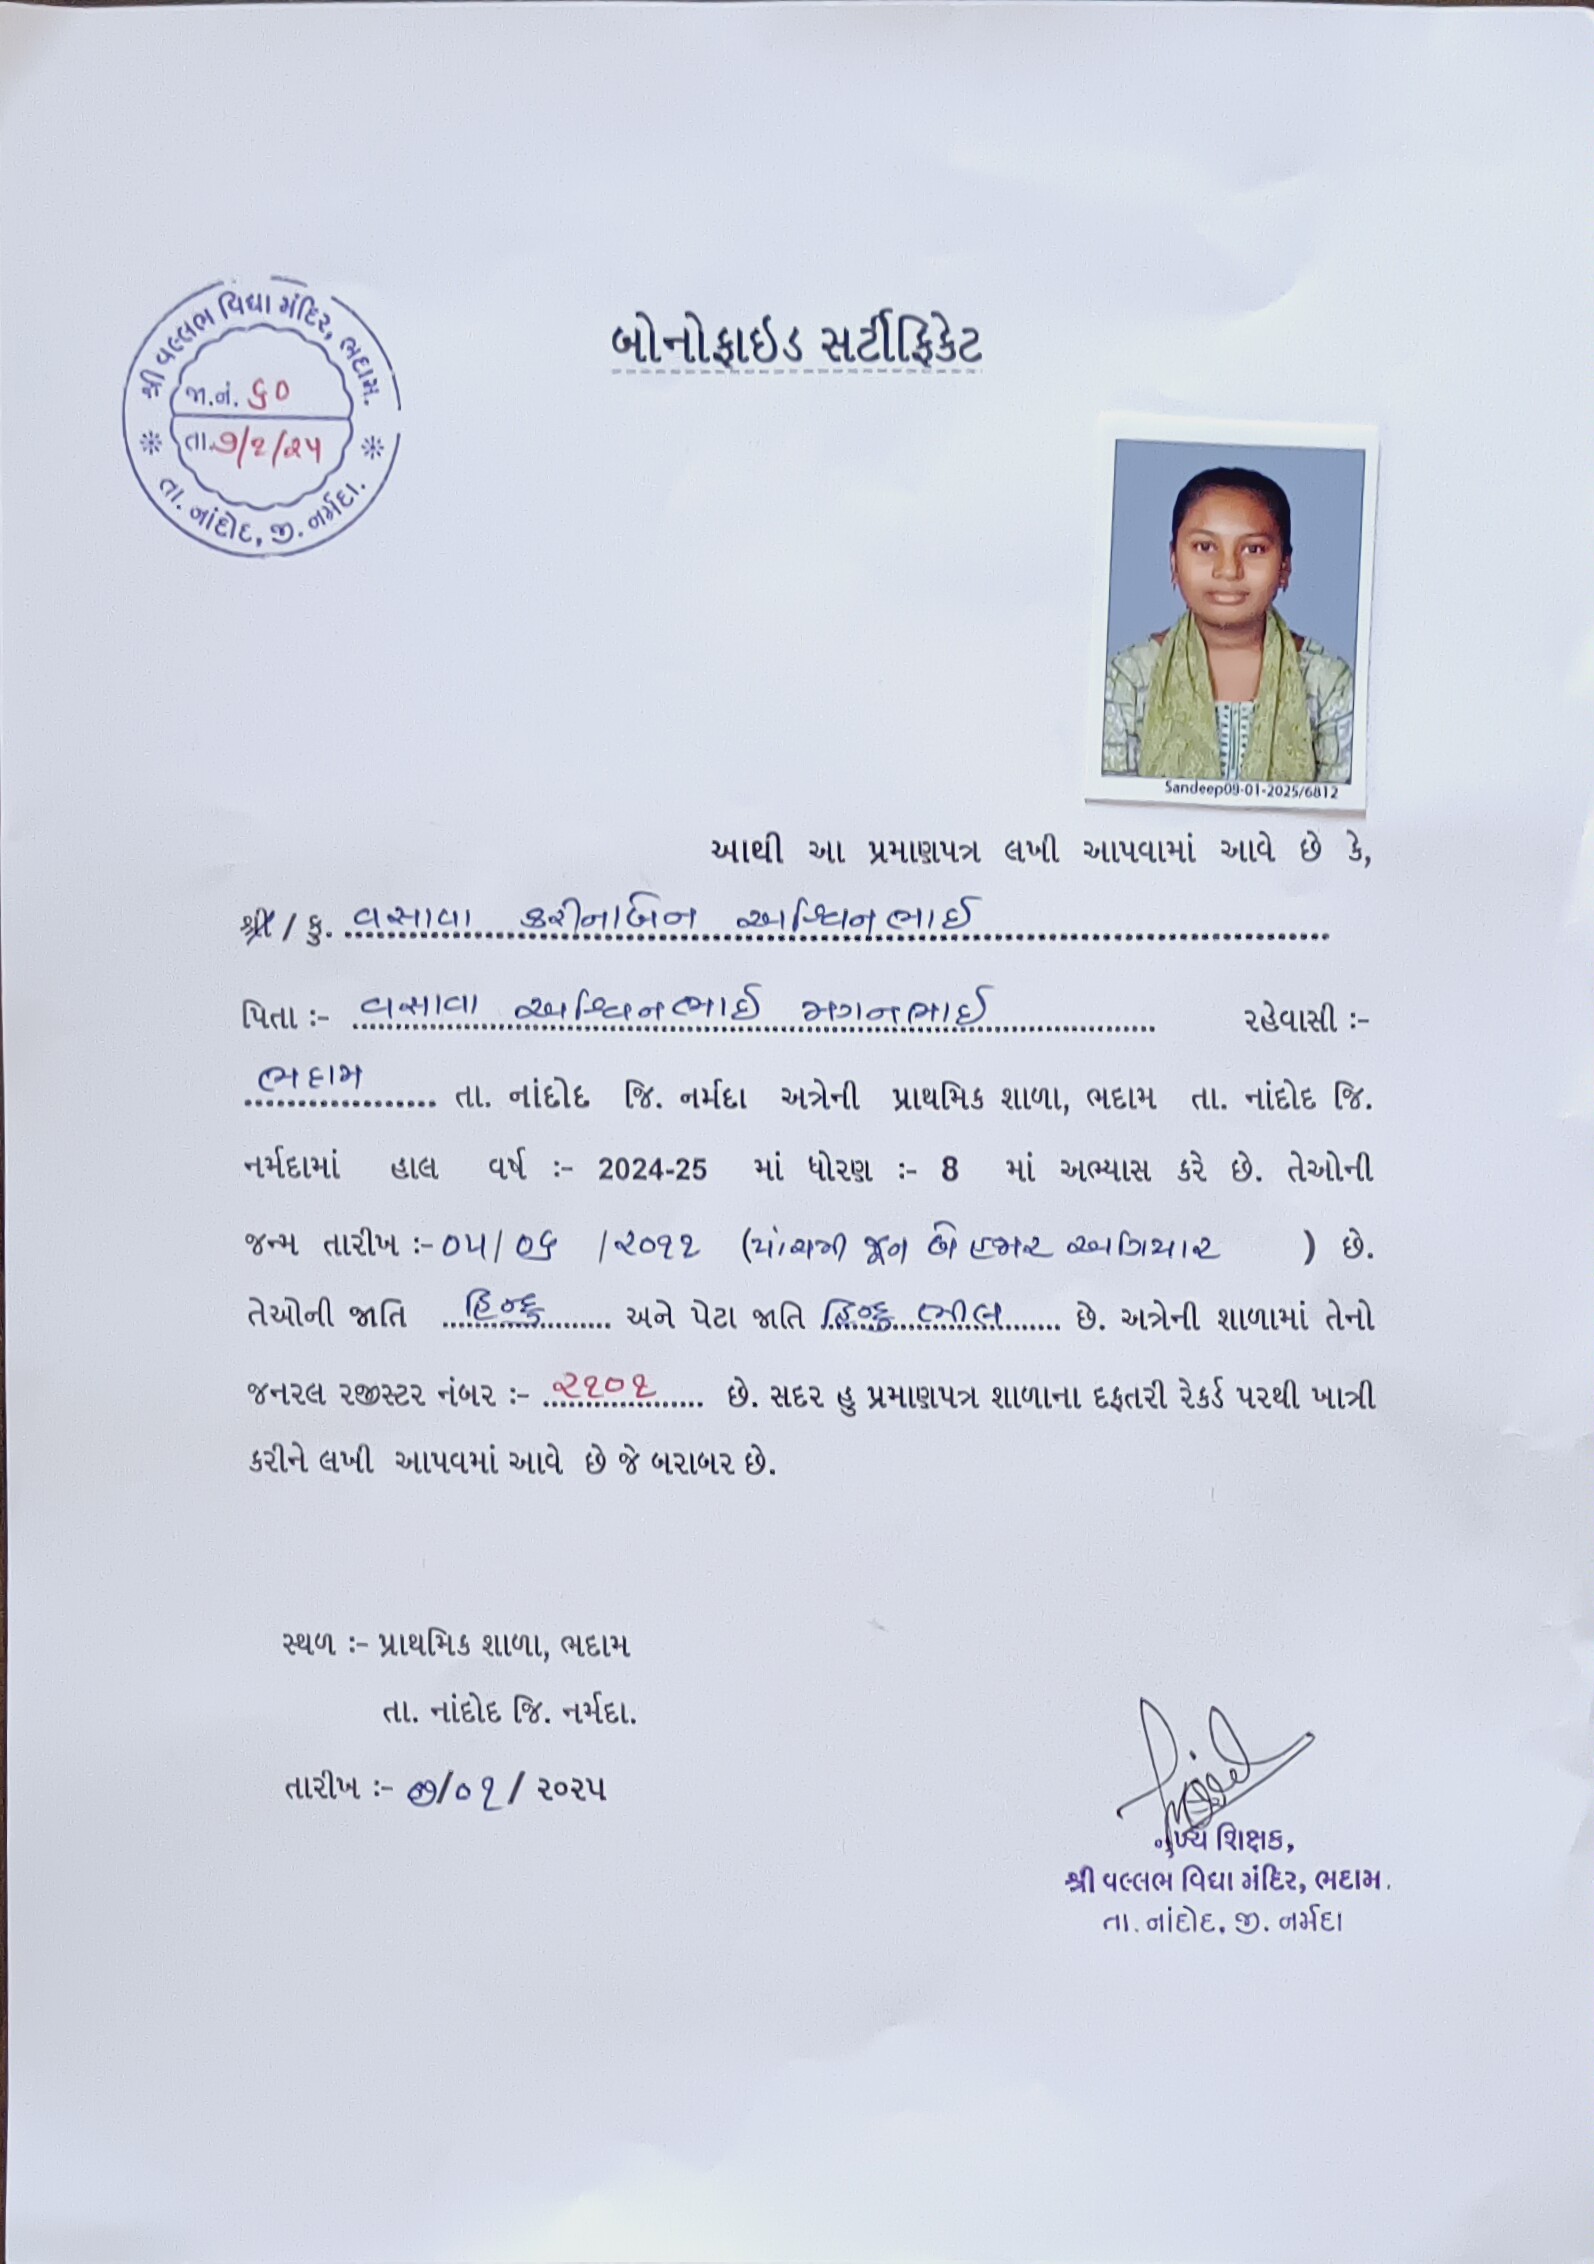 શ્રી વલ્લભ વિદ્યા મંદિર, ભદામ.
જા.નં. ૬૦
તા.૭/૧/૨૫
તા. નાંદોદ, જી. નર્મદા.
બોનોફાઇડ સર્ટીફિકેટ
Sandeep09-01-2025/6812
આથી આ પ્રમાણપત્ર લખી આપવામાં આવે છે કે,
શ્રી / કુ. વસાવા કરીનાબેન અશ્વિનભાઈ
પિતા :- વસાવા અશ્વિનભાઈ મગનભાઈ રહેવાસી :-
ભદામ તા. નાંદોદ જિ. નર્મદા અત્રેની પ્રાથમિક શાળા, ભદામ તા. નાંદોદ જિ.
નર્મદામાં હાલ વર્ષ :- 2024-25 માં ધોરણ :- 8 માં અભ્યાસ કરે છે. તેઓની
જન્મ તારીખ :- ૦૫/૦૬ /૨૦૧૧ (પાંચમી જૂન બે હજાર અગિયાર ) છે.
તેઓની જાતિ હિન્દુ અને પેટા જાતિ હિન્દુ ભીલ છે. અત્રેની શાળામાં તેનો
જનરલ રજીસ્ટર નંબર :- ૨૧૦૧ છે. સદર હુ પ્રમાણપત્ર શાળાના દફતરી રેકર્ડ પરથી ખાત્રી
કરીને લખી આપવમાં આવે છે જે બરાબર છે.
સ્થળ :- પ્રાથમિક શાળા, ભદામ
તા. નાંદોદ જિ. નર્મદા.
તારીખ :- ૭/૦૧/ ૨૦૨૫
મુખ્ય શિક્ષક,
શ્રી વલ્લભ વિદ્યા મંદિર, ભદામ.
તા. નાંદોદ, જી. નર્મદા